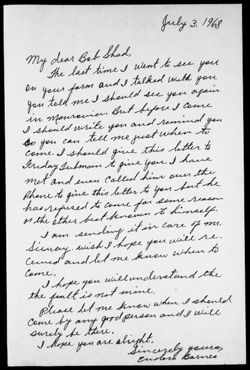 July 3, 1968
My dear Bob Shad,
The last time I went to see you
on your farm and I talked with you
you told me I should see you again
in Monrovia. But before I come
I should write you and remind you
so you can tell me just when to
come. I should give this letter to
Friday Tubman to give you. I have
met and even called him over the
Phone to give this letter to you but he
has refused to come for some reason
or the other best known to himself.
I am sending it in care of Mr.
wish I hope you will re-
ceived and let me know when to
come.
I hope you will understand the
the fault is not mine.
Please let me know when I should
come by any good person and I will
surely be there.
I hope you are alright.
Sincerely yours,
Barnes